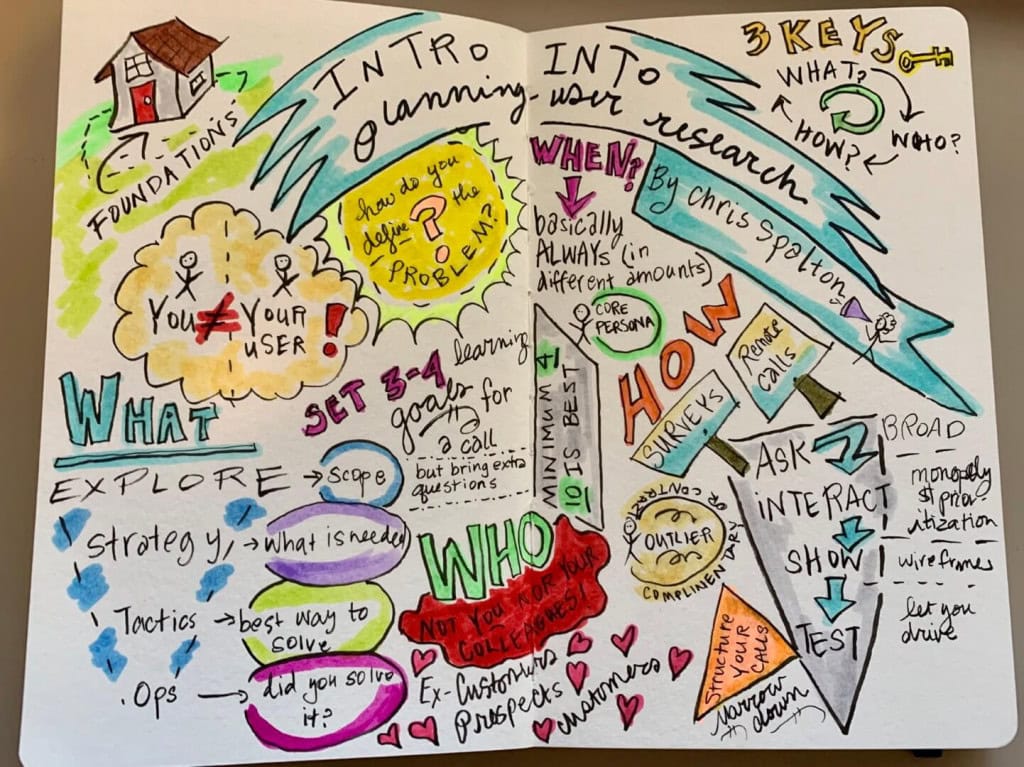 INTRO INTO
planning user research
By Chris Spalton
3 KEYS
WHAT?
WHO?
HOW?
FOUNDATIONS
how do you
define the
PROBLEM?
?
YOU ≠ YOUR
USER !
WHAT
EXPLORE → scope
strategy, → what is needed
Tactics → best way to
solve
Ops → did you solve
it?
SET 3-4 learning
goals for
a call
but bring extra
questions
WHEN?
basically
ALWAYS (in
different amounts)
MINIMUM 4
10 IS BEST
CORE
PERSONA
WHO
NOT YOU NOR YOUR
COLLEAGUES!
Ex-Customers
Prospects
Customers
HOW
SURVEYS
Remote
Calls
OUTLIER
OR CONTRARY
COMPLIMENTARY
Structure
YOUR
CALLS
Narrow
down
ASK
INTERACT
SHOW
TEST
BROAD
monopoly
$ prior
itization
wireframes
let you
drive